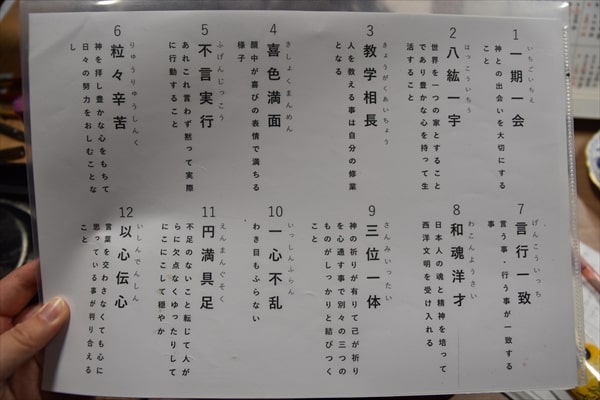 1
いちごいちえ
一期一会
神との出会いを大切にする
こと
2
はっこういちう
八紘一宇
世界を一つの家とすること
であり豊かな心を持って生
活すること
3
きょうがくあいちょう
教学相長
人を教える事は自分の修業
となる
4
きしょくまんめん
喜色満面
顔中が喜びの表情で満ちる
様子
5
ふげんじっこう
不言実行
あれこれ言わず黙って実際
に行動すること
6
りゅうりゅうしんく
粒々辛苦
神を拝し豊かな心をもちて
日々の努力をおしむことな
し
7
げんこういっち
言行一致
言う事・行う事が一致する
事
8
わこんようさい
和魂洋才
日本人の魂と精神を培って
西洋文明を受け入れる
9
さんみいったい
三位一体
神の祈りが有りて己が祈り
を心通す事で別々の三つの
ものがしっかりと結びつく
こと
10
いっしんふらん
一心不乱
わき目もふらない
11
えんまんぐそく
円満具足
不足のないこと転じて人が
らに欠点なくゆったりして
にこにこして穏やか
12
いしんでんしん
以心伝心
言葉を交わさなくても心に
思っている事が判り合える
こと